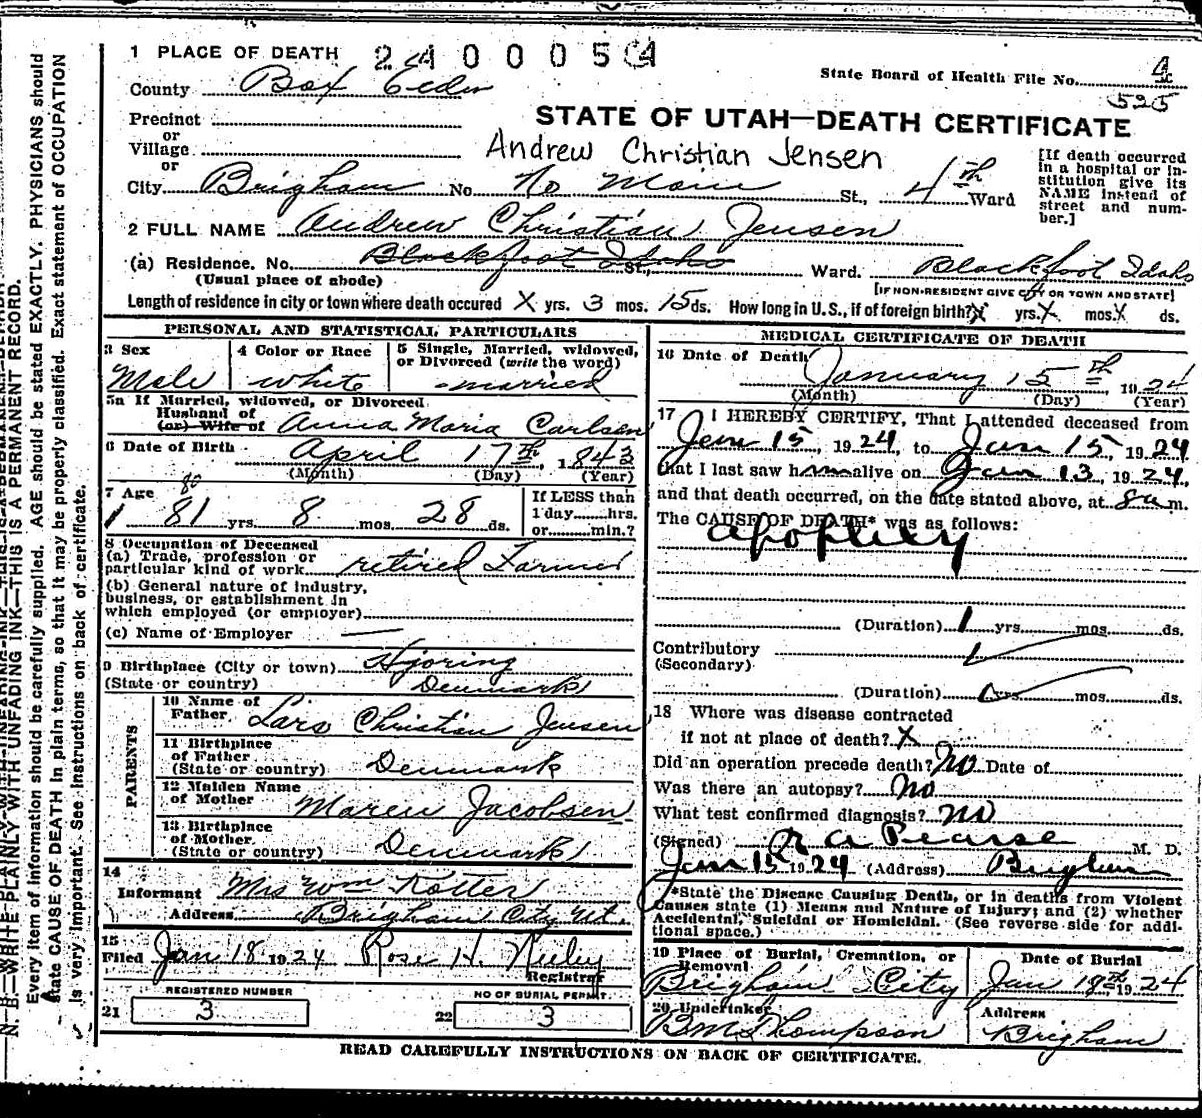 1 PLACE OF DEATH 2400054
State Board of Health File No. 4
County Box Elder
525
Precinct
or
Village
or
STATE OF UTAH—DEATH CERTIFICATE
Andrew Christian Jensen
City Brigham No. No Main St., 4th Ward
[If death occurred in a hospital or institution give its NAME instead of street and number.]
2 FULL NAME Andrew Christian Jensen
(a) Residence. No. Blackfoot Idaho St., Ward. Blackfoot Idaho
(Usual place of abode) [IF NON-RESIDENT GIVE CITY OR TOWN AND STATE]
Length of residence in city or town where death occured X yrs. 3 mos. 15 ds. How long in U.S., if of foreign birth? X yrs. X mos. X ds.
PERSONAL AND STATISTICAL PARTICULARS
3 Sex
Male
4 Color or Race
white
5 Single, Married, widowed,
or Divorced (write the word)
married
5a If Married, widowed, or Divorced
Husband of
(or) Wife of Anna Maria Carlsen
6 Date of Birth April 17th, 1843
(Month) (Day) (Year)
7 Age 80
81 yrs. 8 mos. 28 ds.
If LESS than
1 day hrs.
or min.?
8 Occupation of Deceased
(a) Trade, profession or
particular kind of work retired Farmer
(b) General nature of industry,
business, or establishment in
which employed (or employer)
(c) Name of Employer —
9 Birthplace (City or town) Hjoring
(State or country) Denmark
PARENTS
10 Name of
Father Lars Christian Jensen
11 Birthplace
of Father
(State or country) Denmark
12 Maiden Name
of Mother Maren Jacobsen
13 Birthplace
of Mother
(State or country) Denmark
14
Informant Mrs Wm Kotter
Address Brigham City Ut.
15
Filed Jan 18 1924 Rose H. Neeley
Registrar
REGISTERED NUMBER
21 3
NO OF BURIAL PERMIT
22 3
MEDICAL CERTIFICATE OF DEATH
16 Date of Death January 15th, 1924
(Month) (Day) (Year)
17 I HEREBY CERTIFY, That I attended deceased from
Jan 15, 1924, to Jan 15, 1924
that I last saw him alive on Jan 13, 1924,
and that death occurred, on the date stated above, at 8 a m.
The CAUSE OF DEATH* was as follows:
apoplexy
(Duration) 1 yrs. mos. ds.
Contributory
(Secondary)
(Duration) yrs. mos. ds.
18 Where was disease contracted
if not at place of death? X
Did an operation precede death? No Date of
Was there an autopsy? No
What test confirmed diagnosis? no
(Signed) R A Pearse M. D.
Jan 15 1924 (Address) Brigham
*State the Disease Causing Death, or in deaths from Violent
Causes state (1) Means and Nature of Injury; and (2) whether
Accidental, Suicidal or Homicidal. (See reverse side for addi-
tional space.)
19 Place of Burial, Cremation, or
Removal
Brigham City
Date of Burial
Jan 18th 1924
20 Undertaker
B M Thompson
Address
Brigham
READ CAREFULLY INSTRUCTIONS ON BACK OF CERTIFICATE.
N. B.—WRITE PLAINLY WITH UNFADING INK—THIS IS A PERMANENT RECORD.
Every item of information should be carefully supplied. AGE should be stated EXACTLY. PHYSICIANS should
state CAUSE OF DEATH in plain terms, so that it may be properly classified. Exact statement of OCCUPATION
is very important. See instructions on back of certificate.